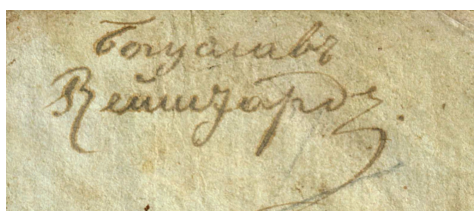 Богуславъ
Рейнгардъ.